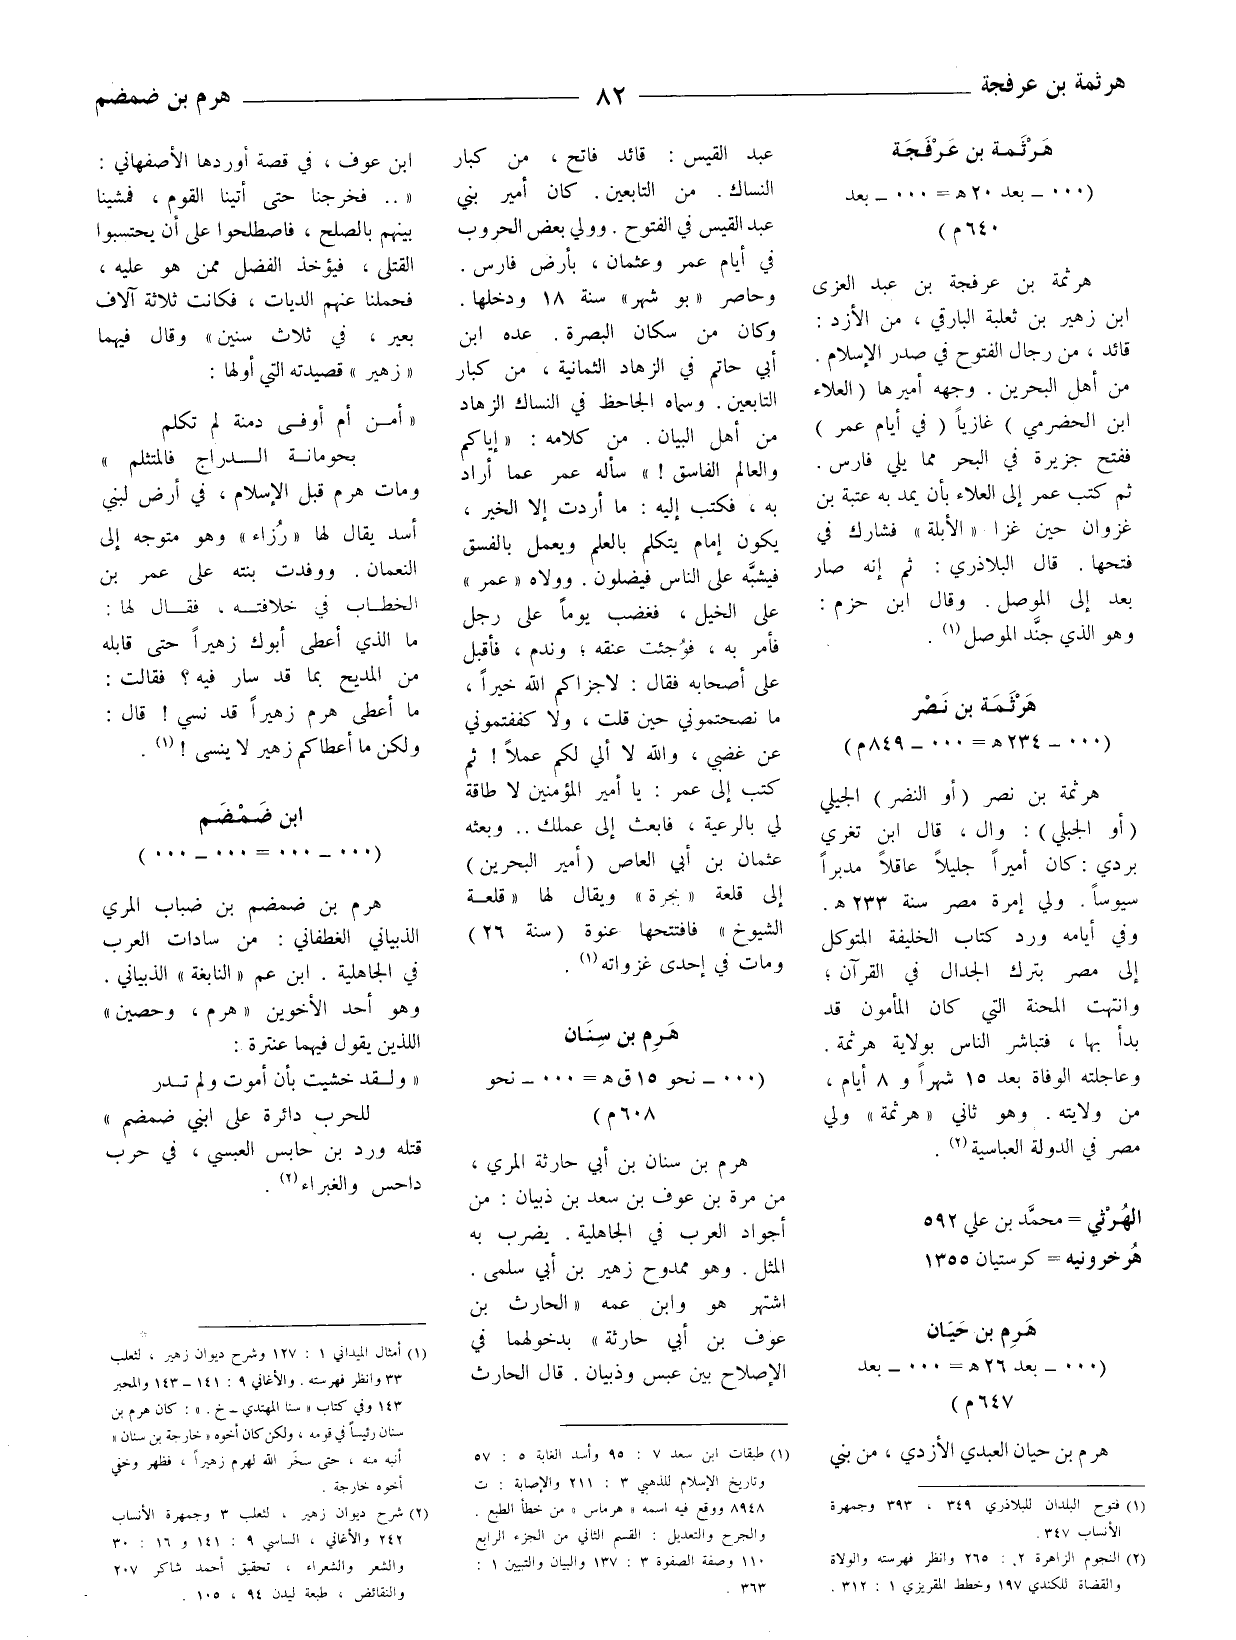 هرثمة بن عرفجة
٨٢
هرم بن ضمضم
هَرْثَمة بن عَرْفَجَة
(٠٠٠ ــ بعد ٢٠ هـ = ٠٠٠ ــ بعد
٦٤٠ م)
هرثمة بن عرفجة بن عبد العزى
ابن زهير بن ثعلبة البارقي ، من الأزد :
قائد ، من رجال الفتوح في صدر الإسلام .
من أهل البحرين . وجهه أميرها ( العلاء
ابن الحضرمي ) غازياً ( في أيام عمر )
ففتح جزيرة في البحر مما يلي فارس .
ثم كتب عمر إلى العلاء بأن يمد به عتبة بن
غزوان حين غزا « الأبلة » فشارك في
فتحها . قال البلاذري : ثم إنه صار
بعد إلى الموصل . وقال ابن حزم :
وهو الذي جنَّد الموصل (١) .
هَرْثَمَة بن نَصْر
(٠٠٠ ــ ٢٣٤ هـ = ٠٠٠ ــ ٨٤٩ م)
هرثمة بن نصر ( أو النضر ) الجيلي
( أو الجبلي ) : وال ، قال ابن تغري
بردي : كان أميراً جليلاً عاقلاً مدبراً
سيوساً . ولي إمرة مصر سنة ٢٣٣ هـ .
وفي أيامه ورد كتاب الخليفة المتوكل
إلى مصر بترك الجدال في القرآن ؛
وانتهت المحنة التي كان المأمون قد
بدأ بها ، فتباشر الناس بولاية هرثمة .
وعاجلته الوفاة بعد ١٥ شهراً و ٨ أيام ،
من ولايته . وهو ثاني « هرثمة » ولي
مصر في الدولة العباسية (٢) .
الهُرْثي = محمَّد بن علي ٥٩٢
هُرخرونيه = كرستيان ١٣٥٥
هَرِم بن حَيَان
(٠٠٠ ــ بعد ٢٦ هـ = ٠٠٠ ــ بعد
٦٤٧ م)
هرم بن حيان العبدي الأزدي ، من بني
(١) فتوح البلدان للبلاذري ٣٤٩ ، ٣٩٣ وجمهرة
الأنساب ٣٤٧ .
(٢) النجوم الزاهرة ٢ : ٢٦٥ وانظر فهرسته والولاة
والقضاة للكندي ١٩٧ وخطط المقريزي ١ : ٣١٢ .
عبد القيس : قائد فاتح ، من كبار
النساك . من التابعين . كان أمير بني
عبد القيس في الفتوح . وولي بعض الحروب
في أيام عمر وعثمان ، بأرض فارس .
وحاصر « بو شهر » سنة ١٨ ودخلها .
وكان من سكان البصرة . عده ابن
أبي حاتم في الزهاد الثمانية ، من كبار
التابعين . وسماه الجاحظ في النساك الزهاد
من أهل البيان . من كلامه : « إياكم
والعالم الفاسق ! » سأله عمر عما أراد
به ، فكتب إليه : ما أردت إلا الخير ،
يكون إمام يتكلم بالعلم ويعمل بالفسق
فيشبَّه على الناس فيضلون . وولاه « عمر »
على الخيل ، فغضب يوماً على رجل
فأمر به ، فوُجئت عنقه ؛ وندم ، فأقبل
على أصحابه فقال : لاجزاكم الله خيراً ،
ما نصحتموني حين قلت ، ولا كففتموني
عن غضبي ، والله لا ألي لكم عملاً ! ثم
كتب إلى عمر : يا أمير المؤمنين لا طاقة
لي بالرعية ، فابعث إلى عملك .. وبعثه
عثمان بن أبي العاص ( أمير البحرين )
إلى قلعة « بجرة » ويقال لها « قلعة
الشيوخ » فافتتحها عنوة ( سنة ٢٦ )
ومات في إحدى غزواته (١) .
هَرِم بن سِنَان
(٠٠٠ ــ نحو ١٥ ق هـ = ٠٠٠ ــ نحو
٦٠٨ م)
هرم بن سنان بن أبي حارثة المري ،
من مرة بن عوف بن سعد بن ذبيان : من
أجواد العرب في الجاهلية . يضرب به
المثل . وهو ممدوح زهير بن أبي سلمى .
اشتهر هو وابن عمه « الحارث بن
عوف بن أبي حارثة » بدخولهما في
الإصلاح بين عبس وذبيان . قال الحارث
(١) طبقات ابن سعد ٧ : ٩٥ وأسد الغابة ٥ : ٥٧
وتاريخ الإسلام للذهبي ٣ : ٢١١ والإصابة : ت
٨٩٤٨ ووقع فيه اسمه « هرماس » من خطأ الطبع .
والجرح والتعديل : القسم الثاني من الجزء الرابع
١١٠ وصفة الصفوة ٣ : ١٣٧ والبيان والتبيين ١ :
٣٦٣ .
ابن عوف ، في قصة أوردها الأصفهاني :
« .. فخرجنا حتى أتينا القوم ، فمشينا
بينهم بالصلح ، فاصطلحوا على أن يحتسبوا
القتلى ، فيؤخذ الفضل ممن هو عليه ،
فحملنا عنهم الديات ، فكانت ثلاثة آلاف
بعير ، في ثلاث سنين » وقال فيهما
« زهير » قصيدته التي أولها :
« أمـن أم أوفـى دمنة لم تكلم
بحومانـة الـدراج فالمتثلم »
ومات هرم قبل الإسلام ، في أرض لبني
أسد يقال لها « رُزاء » وهو متوجه إلى
النعمان . ووفدت بنته على عمر بن
الخطاب في خلافتـه ، فقـال لها :
ما الذي أعطى أبوك زهيراً حتى قابله
من المديح بما قد سار فيه ؟ فقالت :
ما أعطى هرم زهيراً قد نسي ! قال :
ولكن ما أعطاكم زهير لا ينسى ! (١) .
ابن ضَمْضَم
(٠٠٠ ــ ٠٠٠ = ٠٠٠ ــ ٠٠٠)
هرم بن ضمضم بن ضباب المري
الذبياني الغطفاني : من سادات العرب
في الجاهلية . ابن عم « النابغة » الذبياني .
وهو أحد الأخوين « هرم ، وحصين »
اللذين يقول فيهما عنترة :
« ولـقد خشيت بأن أموت ولم تـدر
للحرب دائرة على ابني ضمضم »
قتله ورد بن حابس العبسي ، في حرب
داحس والغبراء (٢) .
(١) أمثال الميداني ١ : ١٢٧ وشرح ديوان زهير ، لثعلب
٣٣ وانظر فهرسته . والأغاني ٩ : ١٤١ ــ ١٤٣ والمحبر
١٤٣ وفي كتاب « سنا المهتدي ــ خ . » : كان هرم بن
سنان رئيساً في قومه ، ولكن كان أخوه « خارجة بن سنان »
أنبه منه ، حتى سخّر الله لهرم زهيراً ، فظهر وخفي
أخوه خارجة .
(٢) شرح ديوان زهير ، لثعلب ٣ وجمهرة الأنساب
٢٤٢ والأغاني ، الساسي ٩ : ١٤١ و ١٦ : ٣٠
والشعر والشعراء ، تحقيق أحمد شاكر ٢٠٧
والنقائض ، طبعة ليدن ٩٤ ، ١٠٥ .